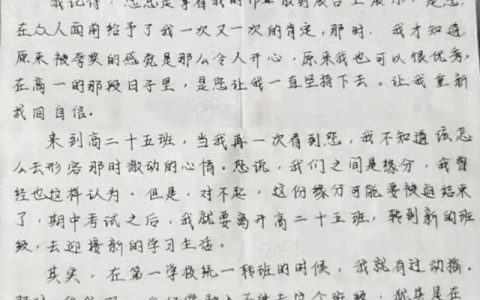 我记得，您总是拿着我的作业放到展台上展示，是您，
在众人面前给予了我一次又一次的肯定，那时，我才知道
原来被夸奖的感觉是那么令人开心，原来我也可以很优秀，
在高一的那段日子里，是您让我一直坚持下去。让我重新
找回自信。
来到高二十五班，当我再一次看到您，我不知道该怎
么去形容那时激动的心情。您说，我们之间是缘分，我曾
经也这样认为。但是，对不起，这份缘分可能要快迫结束
了，期中考试之后，我就要离开高二十五班，转到新的班
级，去迎接新的学习生活。
其实，在第一学校统一转班的时候，我就有过动摇。